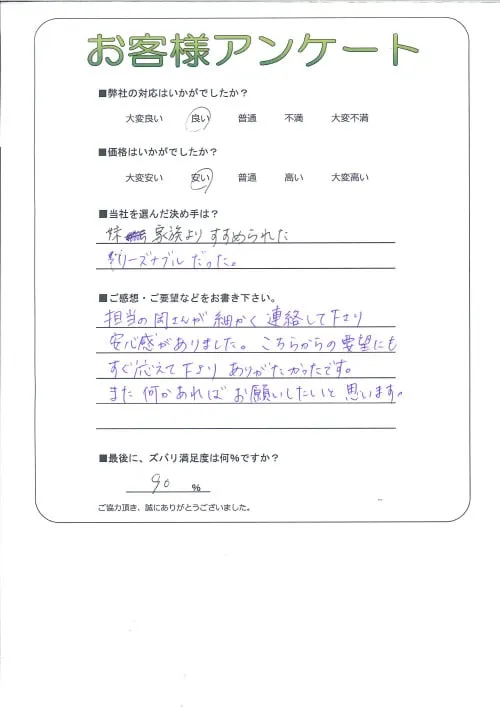 お客様アンケート
■弊社の対応はいかがでしたか？
大変良い 良い 普通 不満 大変不満
■価格はいかがでしたか？
大変安い 安い 普通 高い 大変高い
■当社を選んだ決め手は？
妹 家族よりすすめられた
リーズナブルだった。
■ご感想・ご要望などをお書き下さい。
担当の岡さんが細かく連絡して下さり
安心感がありました。こちらからの要望にも
すぐ応えて下さりありがたかったです。
また何かあればお願いしたいと思います。
■最後に、ズバリ満足度は何％ですか？
90 ％
ご協力頂き、誠にありがとうございました。